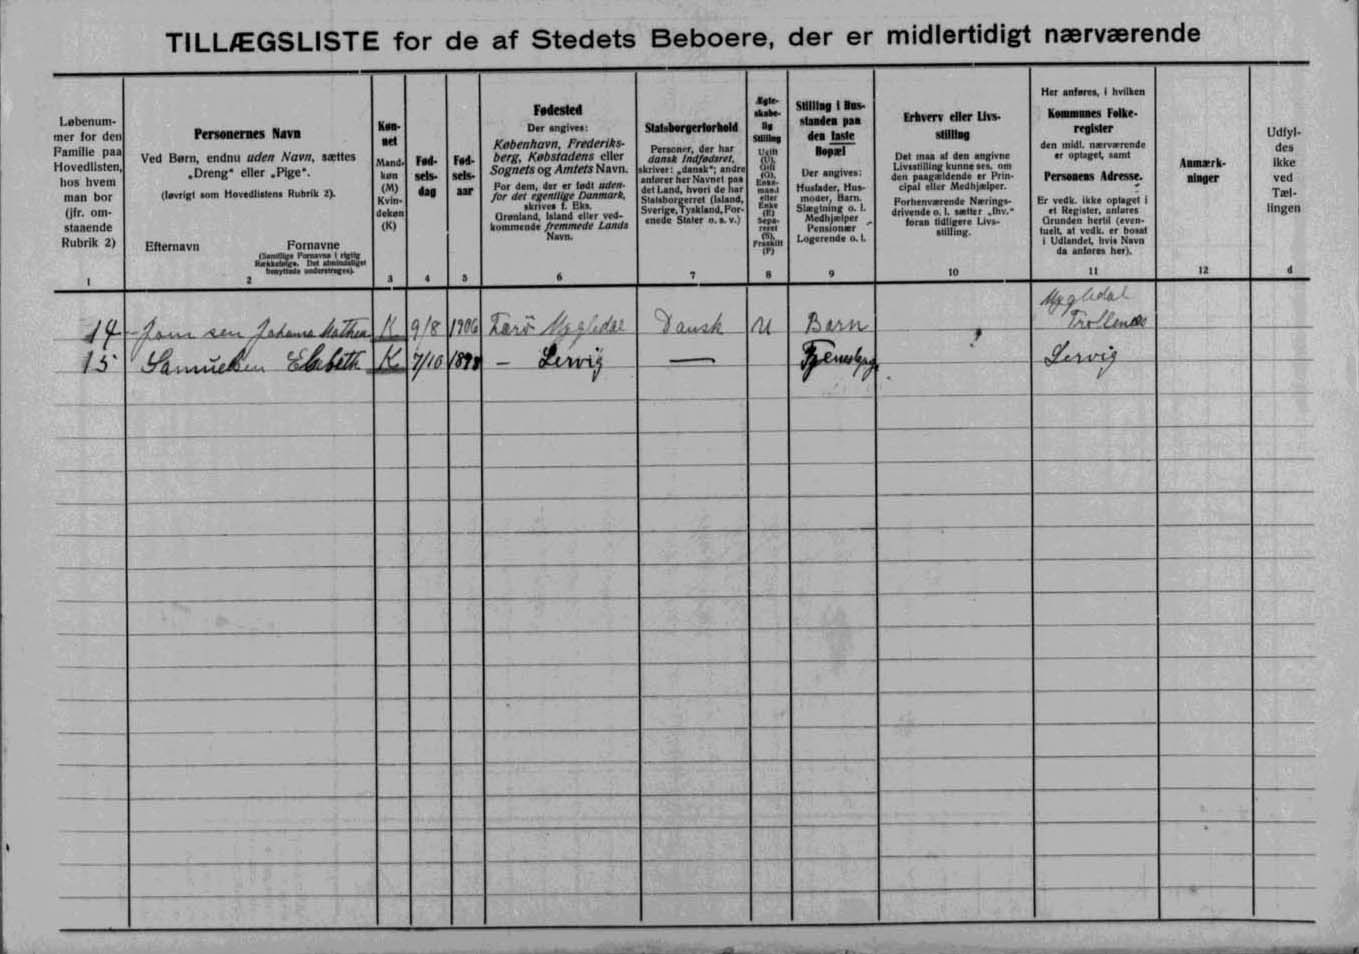 TILLÆGSLISTE for de af Stedets Beboere, der er midlertidigt nærværende
Løbenum-
mer for den
Familie paa
Hovedlisten,
hos hvem
man bor
(jfr. om-
staaende
Rubrik 2)
1
Personernes Navn
Ved Børn, endnu uden Navn, sættes
„Dreng“ eller „Pige“.
(Iøvrigt som Hovedlistens Rubrik 2).
Efternavn
Fornavne
(Samtlige Fornavne i rigtig
Rækkefølge. Det almindeligst
benyttede understreges).
2
Køn-
net
Mand-
køn
(M)
Kvin-
dekøn
(K)
3
Fød-
sels-
dag
4
Fød-
sels-
aar
5
Fødested
Der angives:
København, Frederiks-
berg, Købstadens eller
Sognets og Amtets Navn.
For dem, der er født uden-
for det egentlige Danmark,
skrives f. Eks.
Grønland, Island eller ved-
kommende fremmede Lands
Navn.
6
Statsborgerforhold
Personer, der har
dansk Indfødsret,
skriver: „dansk“; andre
anfører her Navnet paa
det Land, hvori de har
Statsborgerret (Island,
Sverige, Tyskland, For-
enede Stater o. s. v.)
7
Ægte-
skabe-
lig
Stilling
Ugift
(U),
Gift
(G),
Enke-
mand
eller
Enke
(E)
Sepa-
reret
(S),
Fraskilt
(F)
8
Stilling i Hus-
standen paa
den faste
Bopæl
Der angives:
Husfader, Hus-
moder, Barn,
Slægtning o. l.
Medhjælper
Pensionær
Logerende o. l.
9
Erhverv eller Livs-
stilling
Det maa af den angivne
Livsstilling kunne ses, om
den paagældende er Prin-
cipal eller Medhjælper.
Forhenværende Nærings-
drivende o. l. sætter „fhv.“
foran tidligere Livs-
stilling.
10
Her anføres, i hvilken
Kommunes Folke-
register
den midl. nærværende
er optaget, samt
Personens Adresse.
Er vedk. ikke optaget i
et Register, anføres
Grunden hertil (even-
tuelt, at vedk. er bosat
i Udlandet, hvis Navn
da anføres her).
11
Anmærk-
ninger
12
Udfyl-
des
ikke
ved
Tæl-
lingen
d
14 Joensen Johanna Mathea K 9/8 1906 Færø Mygledal Dansk U Barn Mygledal
Trollenæs
15 Samuelsen Elsebeth K 7/10 1898 – Lervig — Tjenestepige Lervig